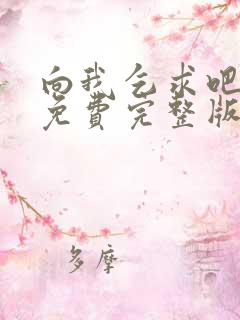 向我乞求吧
免費完整版
多摩